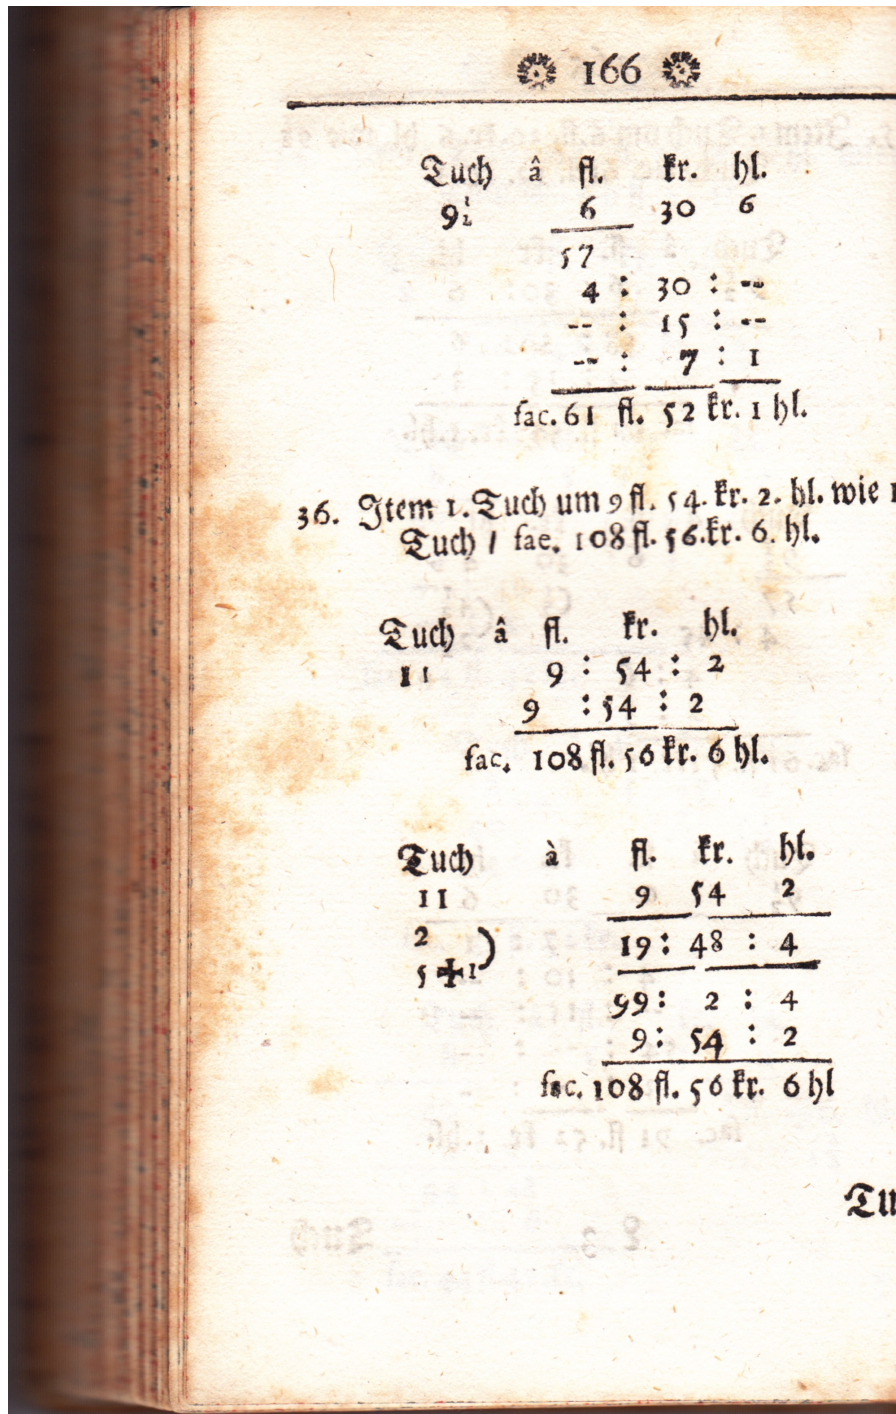 166
Tuch â fl. kr. hl.
9½ 6 30 6
57
4 : 30 : --
-- : 15 : --
-- : 7 : 1
fac. 61 fl. 52 kr. 1 hl.
36. Item 1. Tuch um 9 fl. 54. kr. 2. hl. wie
Tuch / fae. 108 fl. 56. kr. 6. hl.
Tuch â fl. kr. hl.
11 9 : 54 : 2
9 : 54 : 2
fac. 108 fl. 56 kr. 6 hl.
Tuch à fl. kr. hl.
11 9 54 2
2 19 : 48 : 4
5 + 1
99 : 2 : 4
9 : 54 : 2
fac. 108 fl. 56 kr. 6 hl